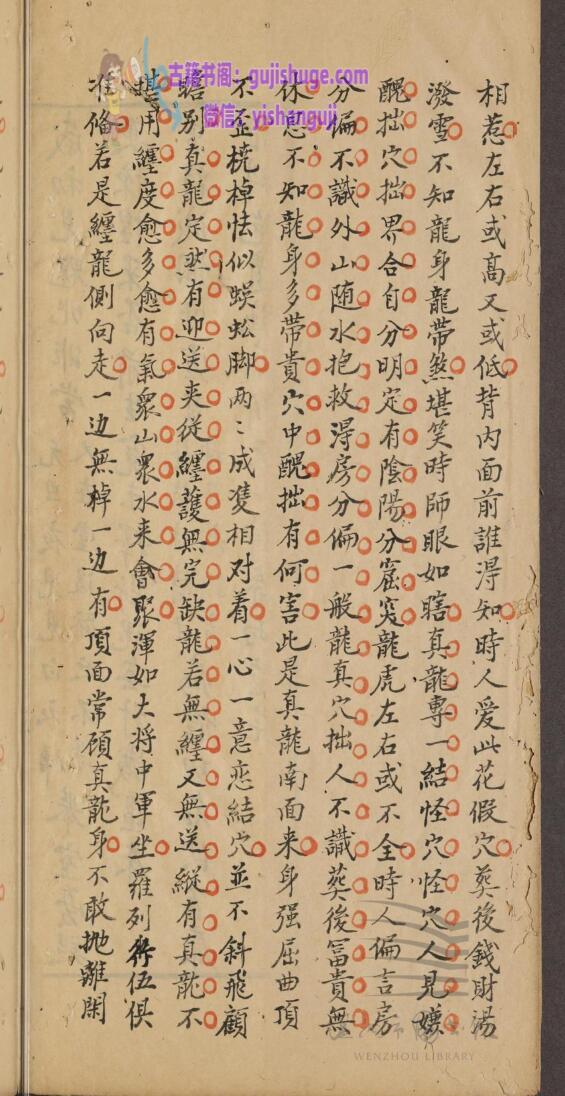 古籍书阁：gujishuge.com
微信：yishanguji
相惹左右或高又或低背内面前誰淂知時人爱此花假穴葬後錢財湯
潑雪不知龍身龍帶煞堪笑時師眼如瞎真龍專一結怪穴怪穴人見嫌
醜拙穴拙界合自分明定有陰陽分窟突龍虎左右或不全時人偏言房
分偏不識外山随水抱救淂房分偏一般龍真穴拙人不識葬後冨貴無
休息不知龍身多帶貴穴中醜拙有何害此是真龍南面来身强屈曲頂
不歪桡棹怯似蜈蚣脚两〻成隻相对着一心一意恋結穴並不斜飛顧
瞻别真龍定然有迎送夹従纒護無完缺龍若無纒又無送縦有真龍不
堪用纒度愈多愈有氣衆山衆水来會聚渾如大将中軍坐羅列行伍俱
准俻若是纒龍側向走一边無棹一边有頂面常顧真龍身不敢抛離閑
WENZHOU LIBRARY